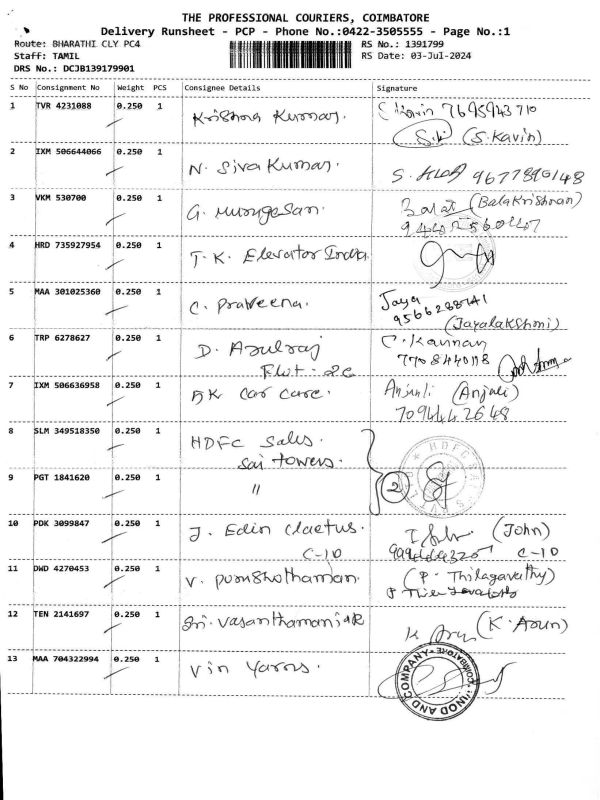 THE PROFESSIONAL COURIERS, COIMBATORE
Delivery Runsheet - PCP - Phone No.:0422-3505555 - Page No.:1
Route: BHARATHI CLY PC4
RS No.: 1391799
Staff: TAMIL
RS Date: 03-Jul-2024
DRS No.: DCJB139179901
S No Consignment No Weight PCS Consignee Details Signature
1 TVR 4231088 0.250 1 Krishna Kumar. 7695943710
(S.Kavin)
2 IXM 506644066 0.250 1 N. Siva Kumar.
3 VKM 530700 0.250 1 G. Murugesan. (Balakrishnan)
4 HRD 735927954 0.250 1 T.K. Elevator India
5 MAA 301025360 0.250 1 C. Praveena. Jaya
9566288741
(Jayalakshmi)
6 TRP 6278627 0.250 1 D. Arulraj C. Kannan
Flat - 2C
7 IXM 506636958 0.250 1 AK Car Care. Anjali (Anjali)
7094442648
8 SLM 349518350 0.250 1 HDFC Sales.
Sai Towers.
9 PGT 1841620 0.250 1 " 2
10 PDK 3099847 0.250 1 J. Edin Claetus. (John)
C-10 C-10
11 DWD 4270453 0.250 1 V. (P. Thilagavathy)
12 TEN 2141697 0.250 1 Sri. (K. Arun)
13 MAA 704322994 0.250 1 Vin Yarns.
AND COMPANY
COIMBATORE